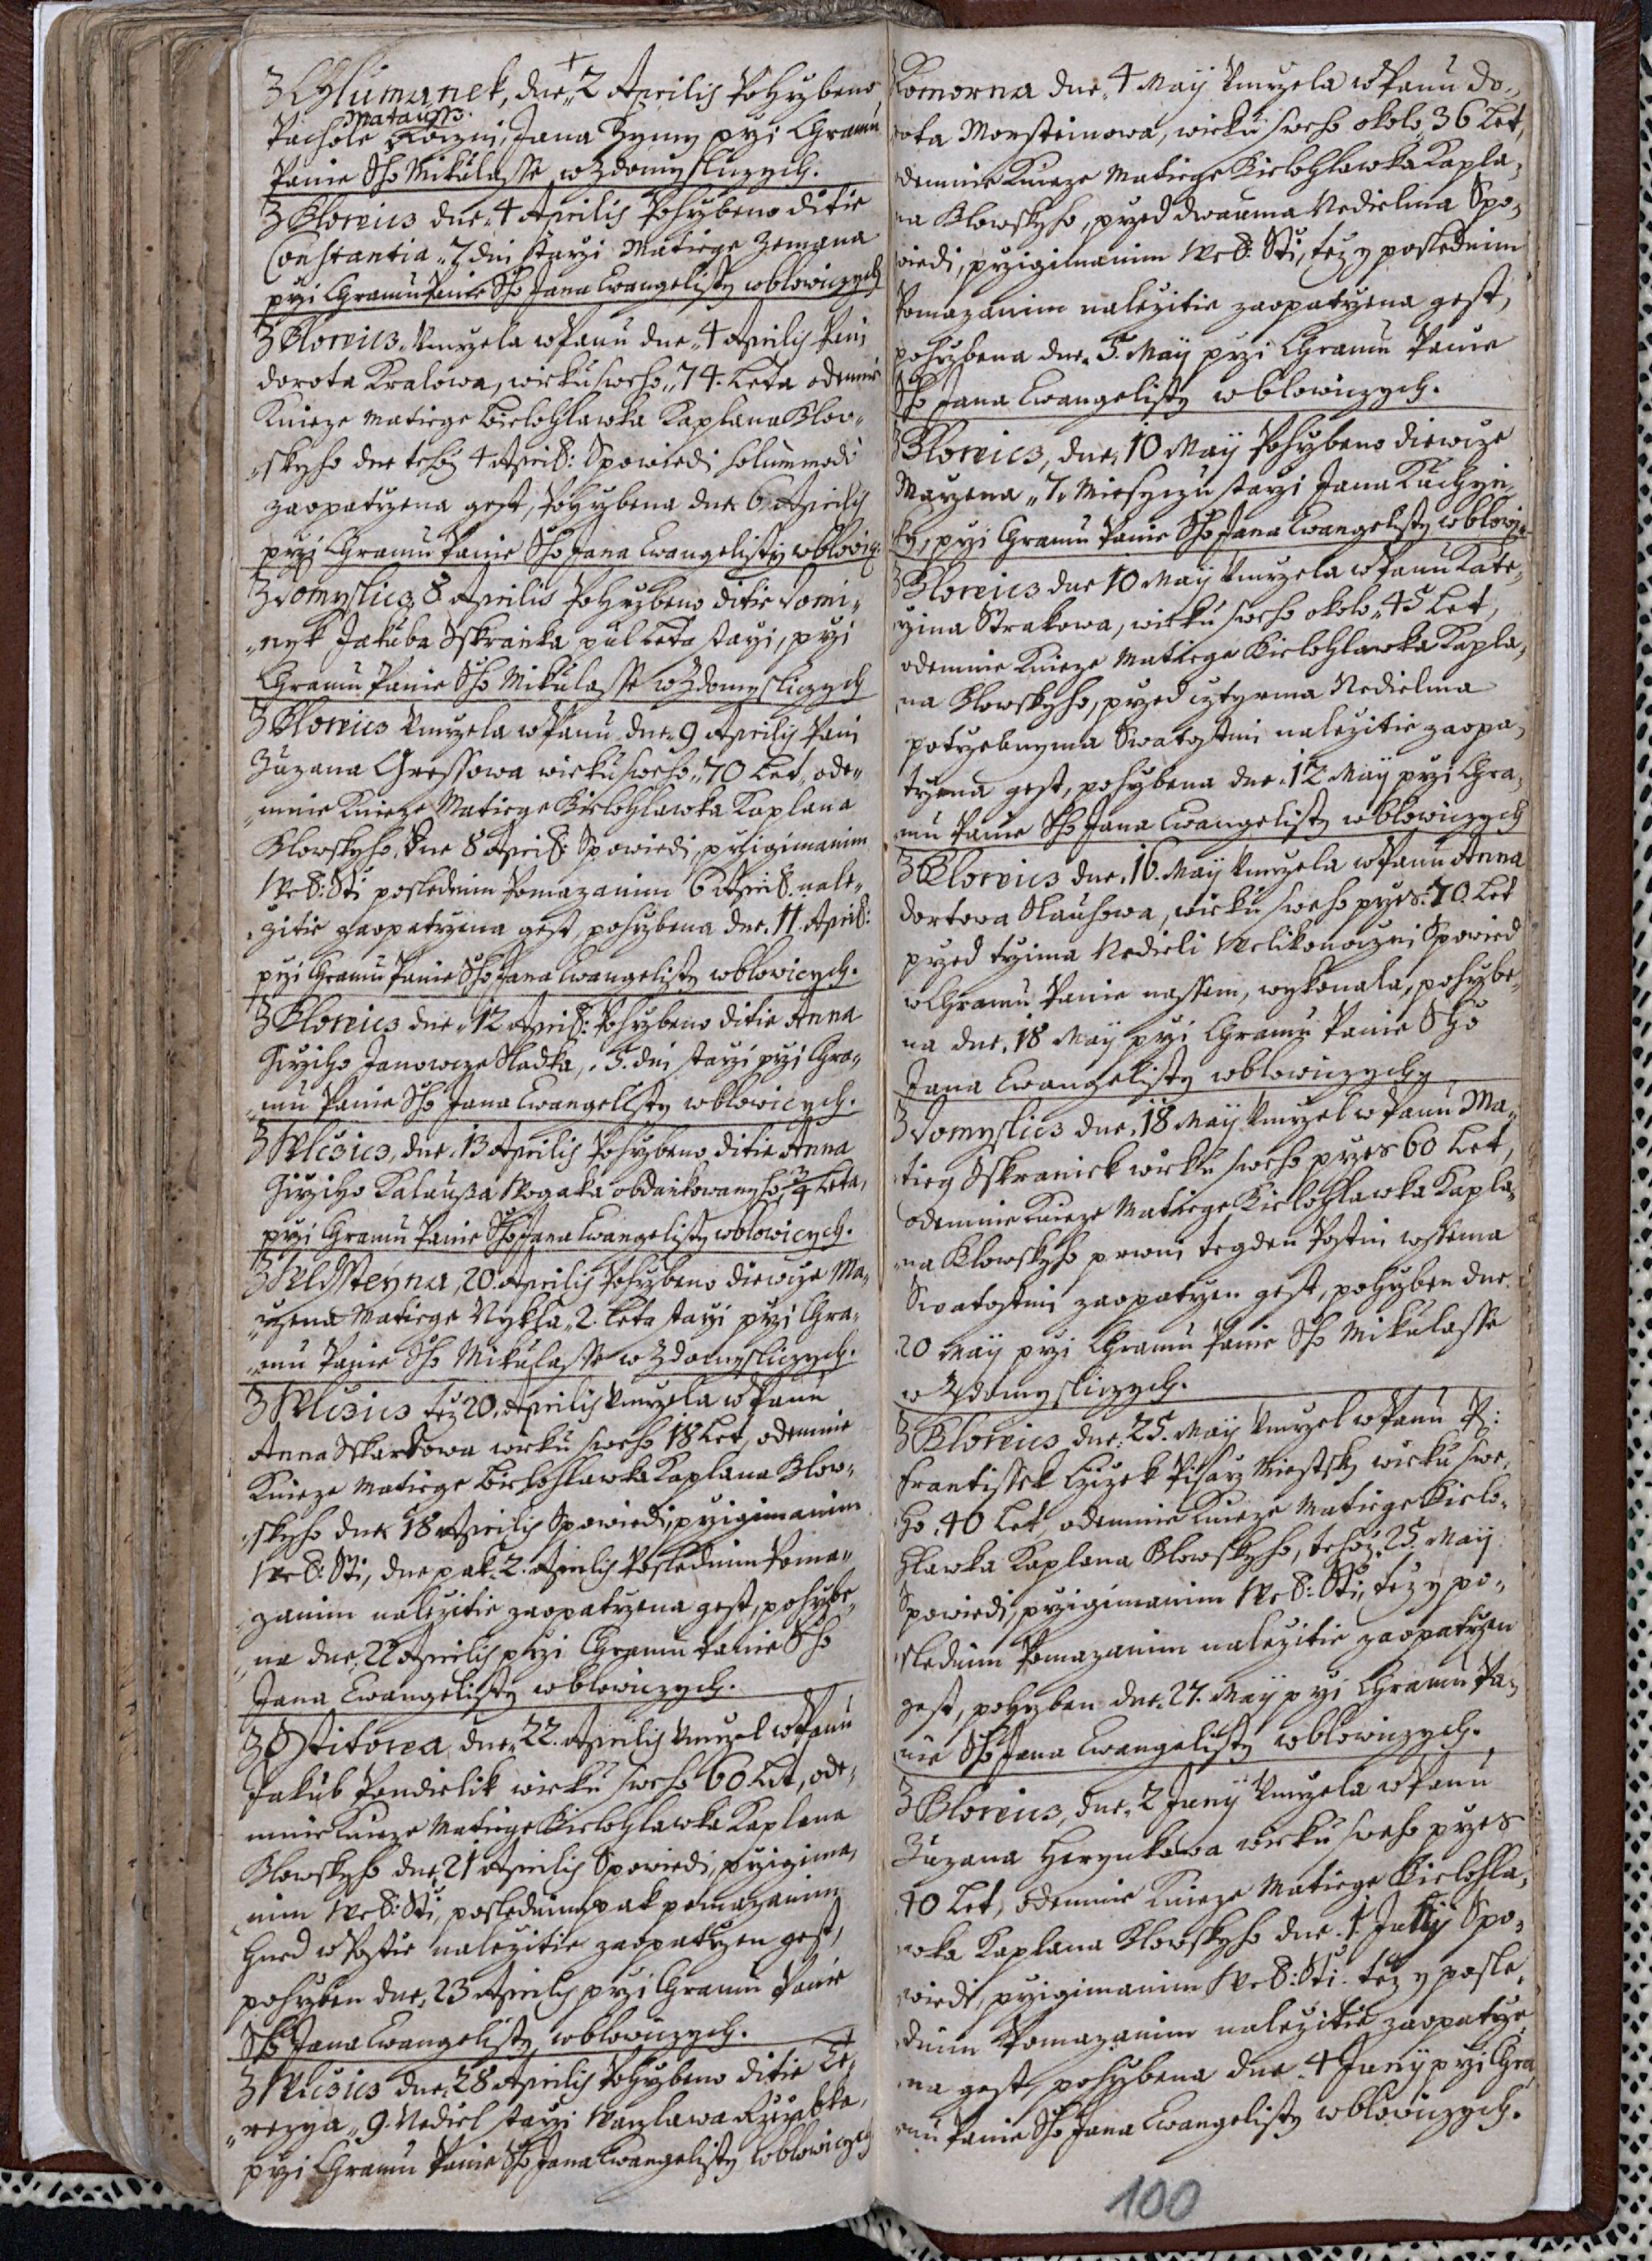 Z Chlumanek, dne 2 Aprilis Pohrzbeno
Matauss
Pachole Jana Zymy przi Chramu
Panie Sho Mikulasse w Zdomysliczych.
Z Blowicz dne 4 Aprilis Pohrzbeno ditie
Constantia „7 dni starzi Matiege Zemana
przi Chramu Panie Sho Jana Ewangelisty w blowiczych
Z Blowicz, Vmrzela w Panu dne „4 Aprilis Pani
dorota Kralowa, wieku sweho „74. Leta odemnie
Knieze Matiege Bielohlawka Kaplana Blow„
„skyho dne tehoz 4 April: Spowiedi solummodo
zaopatrzena gest, Pohrzbena dne 6 Aprilis
przi Chramu Panie Sho Jana Ewangelisty w blowicz:
Zdomyslicz 8 Aprilis Pohrzbeno ditie Domi„
„nyk Jakuba Sskranka pul Leta starzi, przi
Chramu Panie Sho Mikulasse w Zdomysliczych
Z Blowicz Vmrzela w Panu dne 9 Aprilis Pani
Zuzana Gressowa wieku sweho „70 Let, ode„
„mnie Knieze Matiege Bielohlawka Kaplana
Blowskyho, dne 8 April: Spowiedi, przigimanim
Wel: Sti poslednim Pomazanim 6 April. nale„
„zitie zaopatrzena gest, pohrzbena dne 11. April:
przi Chramu Panie Sho Jana Ewangelisty w blowiczych.
Z Blowicz dne „12 April: Pohrzbeno ditie Anna
Girziho Janowcze Sladka, „5. dni starzi przi Chra„
„mu Panie Sho Jana Ewangelisty w blowiczych.
Z Wlcic, dne 13 Aprilis Pohrzbeno ditie Anna
Girziho Kalausa Wogaka obdankowanyho, 3/4 Leta,
przi Chramu Panie Sho Jana Ewangelisty w blowiczych.
Z Wldssteyna, 20 Aprilis Pohrzbeno diewcze Ma„
„rzena Matiege Nykla „2. Leta starzi przi Chra„
„mu Panie Sho Mikulasse w Zdomysliczych.
Z Wlcic tez 20. Aprilis Vmrzela w Panu
Anna Sskardowa wieku sweho 18 Let, odemnie
Knieze Matiege Bielohlawka Kaplana Blow„
„skyho dne 18 Aprilis Spowiedi, przigimanim
Wel: Sti, dne pak 2. Aprilis Poslednim Poma„
„zanim nalezitie zaopatrzena gest, pohrzbe„
„na dne 22 Aprilis przi Chramu Panie Sho
Jana Ewangelisty w blowiczych.
Z Sstitowa, dne 22. Aprilis Vmrzel w Panu
Jakub Pondielik wieku sweho 60 Let, ode„
mnie Knieze Matiege Bielohlawka Kaplana
Blowskyho dne 21 Aprilis Spowiedi, przigima„
nim Wel: Sti, poslednim pak pomazanim
hned w Postie nalezitie zaopatrzen gest,
pohrzben dne 23 Aprilis przi Chramu Panie
Sho Jana Ewangelisty w blowiczych.
Z Wlcic dne 28 Aprilis Pohrzbeno ditie Te„
„rezya „9. Nediel starzi Waczlawa
przi Chramu Panie Sho Jana Ewangelisty w blowiczych
Komorna dne 4 Maÿ Vmrzela w Panu do„
rota Morsteinowa, wieku sweho okolo „36 Let,
odemnie Knieze Matiege Bielohlawka Kapla„
na Blowskyho, przed dwauma Nedielma Spo„
wiedi, przigimanim Wel: Sti, tez y poslednim
Pomazanim nalezitie zaopatrzena gest,
pohrzbena dne 5. Maÿ przi Chramu Panie
Sho Jana Ewangelisty w blowiczych.
Z Blowicz, dne 10 Maÿ Pohrzbeno diewcze
Marzena „7. Miesyczu starzi Jana Kuchyn„
ky, przi Chramu Panie Sho Jana Ewangelisty w blowi„
Z Blowicz dne 10 Maÿ Vmrzela w Panu Kate„
rzina Strakowa, wieku sweho okolo „45 Let,
odemnie Knieze Matiege Bielohlawka Kapla„
na Blowskyho, przed cztyrma Nedielma
potrzebnyma Swatostmi nalezitie zaopa„
trzena gest, pohrzbena dne 12 Maÿ przi Chra„
mu Panie Sho Jana Ewangelisty w blowiczych
Z Blowicz dne 16. Maÿ Vmrzela w Panu Anna
dortowa Slauhowa, wieku sweho przes 70. Let
przed trzima Nedieli Welikonoczni Spowied
w Chramu Panie nassem, wykonala, pohrzbe„
na dne 18 Maÿ przi Chramu Panie Sho
Jana Ewangelisty w blowiczych
Zdomyslicz dne 18 Maÿ Vmrzel w Panu Ma„
tieg Sskraniek wieku sweho przes 60 Let,
odemnie Knieze Matiege Bielohlawka Kapla„
na Blowskyho prwni tegden Postni wssema
Swatostmi zaopatrzen gest, pohrzben dne
20 Maÿ przi Chramu Panie Sho Mikulasse
w Zdomysliczych.
Z Blowicz dne 25. Maÿ Vmrzel w Panu P:
Frantissek Czizek Pisarz Miestsky wieku swe„
ho 40 Let, odemnie Knieze Matiege Bielo„
hlawka Kaplana Blowskyho, tehoz 25. Maÿ
Spowiedi, przigimanim Wel: Sti, tez y po„
slednim Pomazanim nalezitie zaopatrzen
gest, pohrzben dne 27. Maÿ przi Chramu Pa„
nie Sho Jana Ewangelisty w blowiczych.
Z Blowicz, dne 2 Junÿ Vmrzela w Panu
Zuzana Herynkowa wieku sweho przes
40 Let, odemnie Knieze Matiege Bielohla„
wka Kaplana Blowskyho dne 1 Spo„
wiedi, przigimanim Wel: Sti. tez y posle„
dnim Pomazanim nalezitie zaopatrze„
na gest, pohrzbena dne 4 Junÿ przi Chra„
mu Panie Sho Jana Ewangelisty w blowiczych.
100